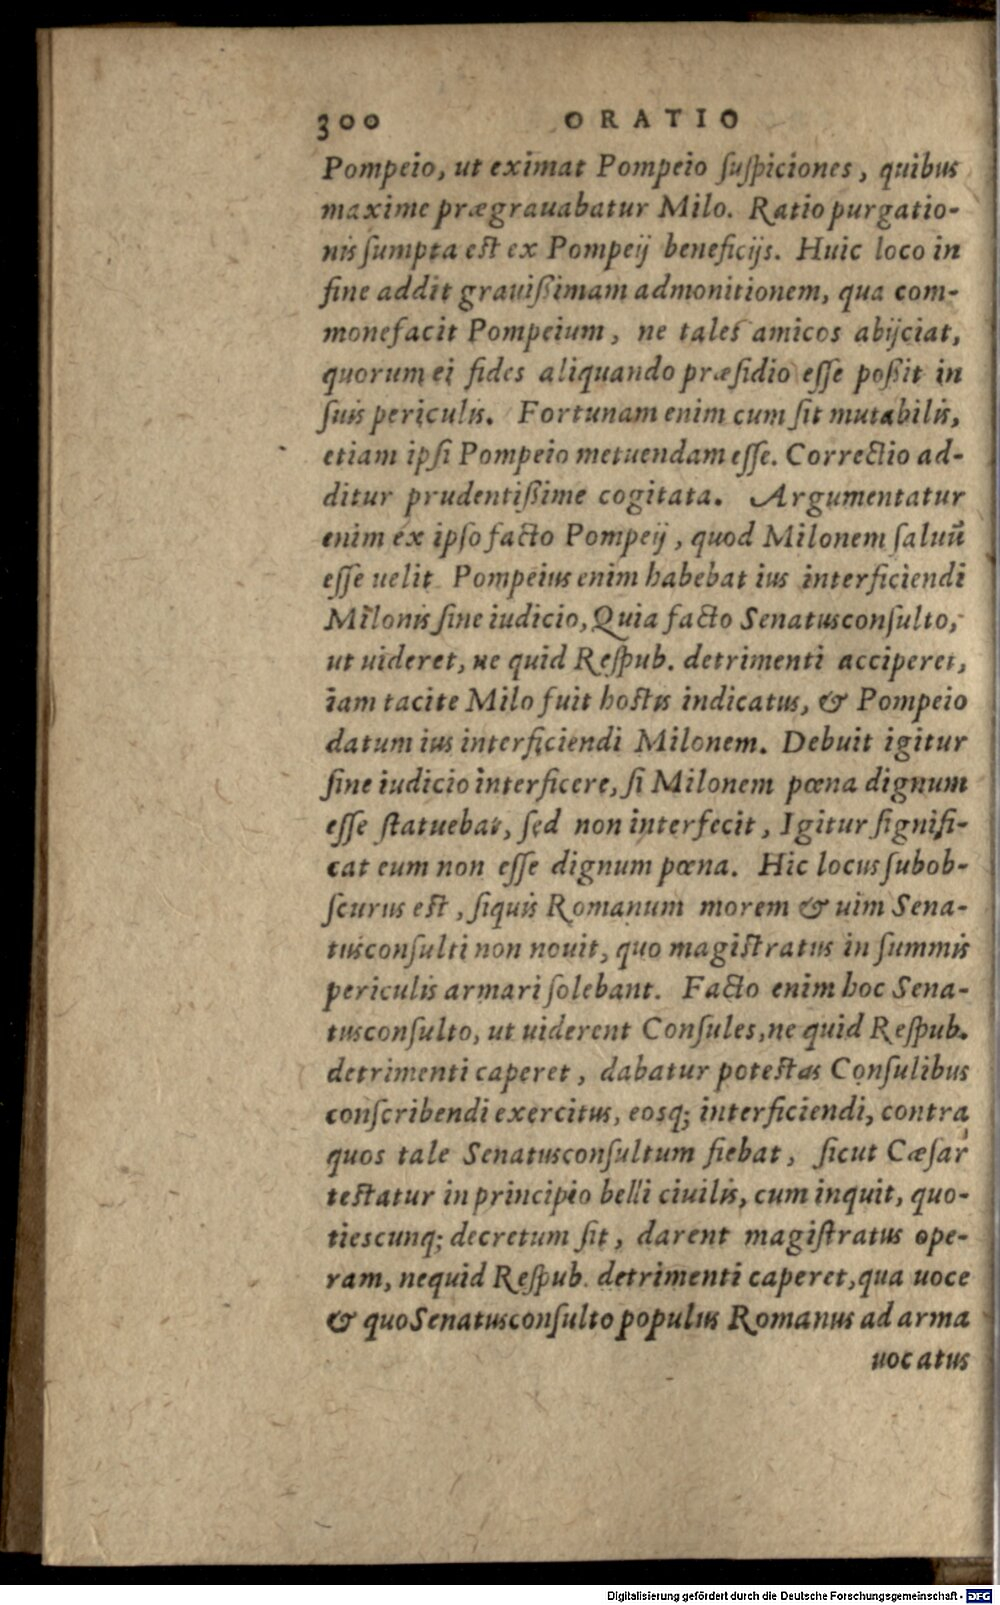 300 ORATIO
Pompeio, ut eximat Pompeio ſuſpiciones, quibus
maxime prægrauabatur Milo. Ratio purgatio-
nis ſumpta eſt ex Pompeij beneficijs. Huic loco in
fine addit grauißimam admonitionem, qua com-
monefacit Pompeium, ne tales amicos abijciat,
quorum ei fides aliquando præſidio eſſe poßit in
ſuis periculis. Fortunam enim cum ſit mutabilis,
etiam ipſi Pompeio metuendam eſſe. Correctio ad-
ditur prudentißime cogitata. Argumentatur
enim ex ipſo facto Pompeij, quod Milonem ſaluũ
eſſe uelit. Pompeius enim habebat ius interficiendi
Milonis ſine iudicio, Quia facto Senatusconſulto,
ut uideret, ne quid Reſpub. detrimenti acciperet,
iam tacite Milo fuit hostis indicatus, & Pompeio
datum ius interficiendi Milonem. Debuit igitur
ſine iudicio interficere, ſi Milonem pœna dignum
eſſe ſtatuebat, ſed non interfecit, Igitur ſignifi-
cat eum non eſſe dignum pœna. Hic locus ſubob-
ſcurus eſt, ſiquis Romanum morem & uim Sena-
tusconſulti non nouit, quo magiſtratus in ſummis
periculis armari ſolebant. Facto enim hoc Sena-
tusconſulto, ut uiderent Conſules, ne quid Reſpub.
detrimenti caperet, dabatur poteſtas Conſulibus
conſcribendi exercitus, eosq; interficiendi, contra
quos tale Senatusconſultum fiebat, ſicut Cæſar
teſtatur in principio belli ciuilis, cum inquit, quo-
tiescunq; decretum ſit, darent magiſtratus ope-
ram, nequid Reſpub. detrimenti caperet, qua uoce
& quo Senatusconſulto populus Romanus ad arma
uocatus
Digitalisierung gefördert durch die Deutsche Forschungsgemeinschaft - DFG